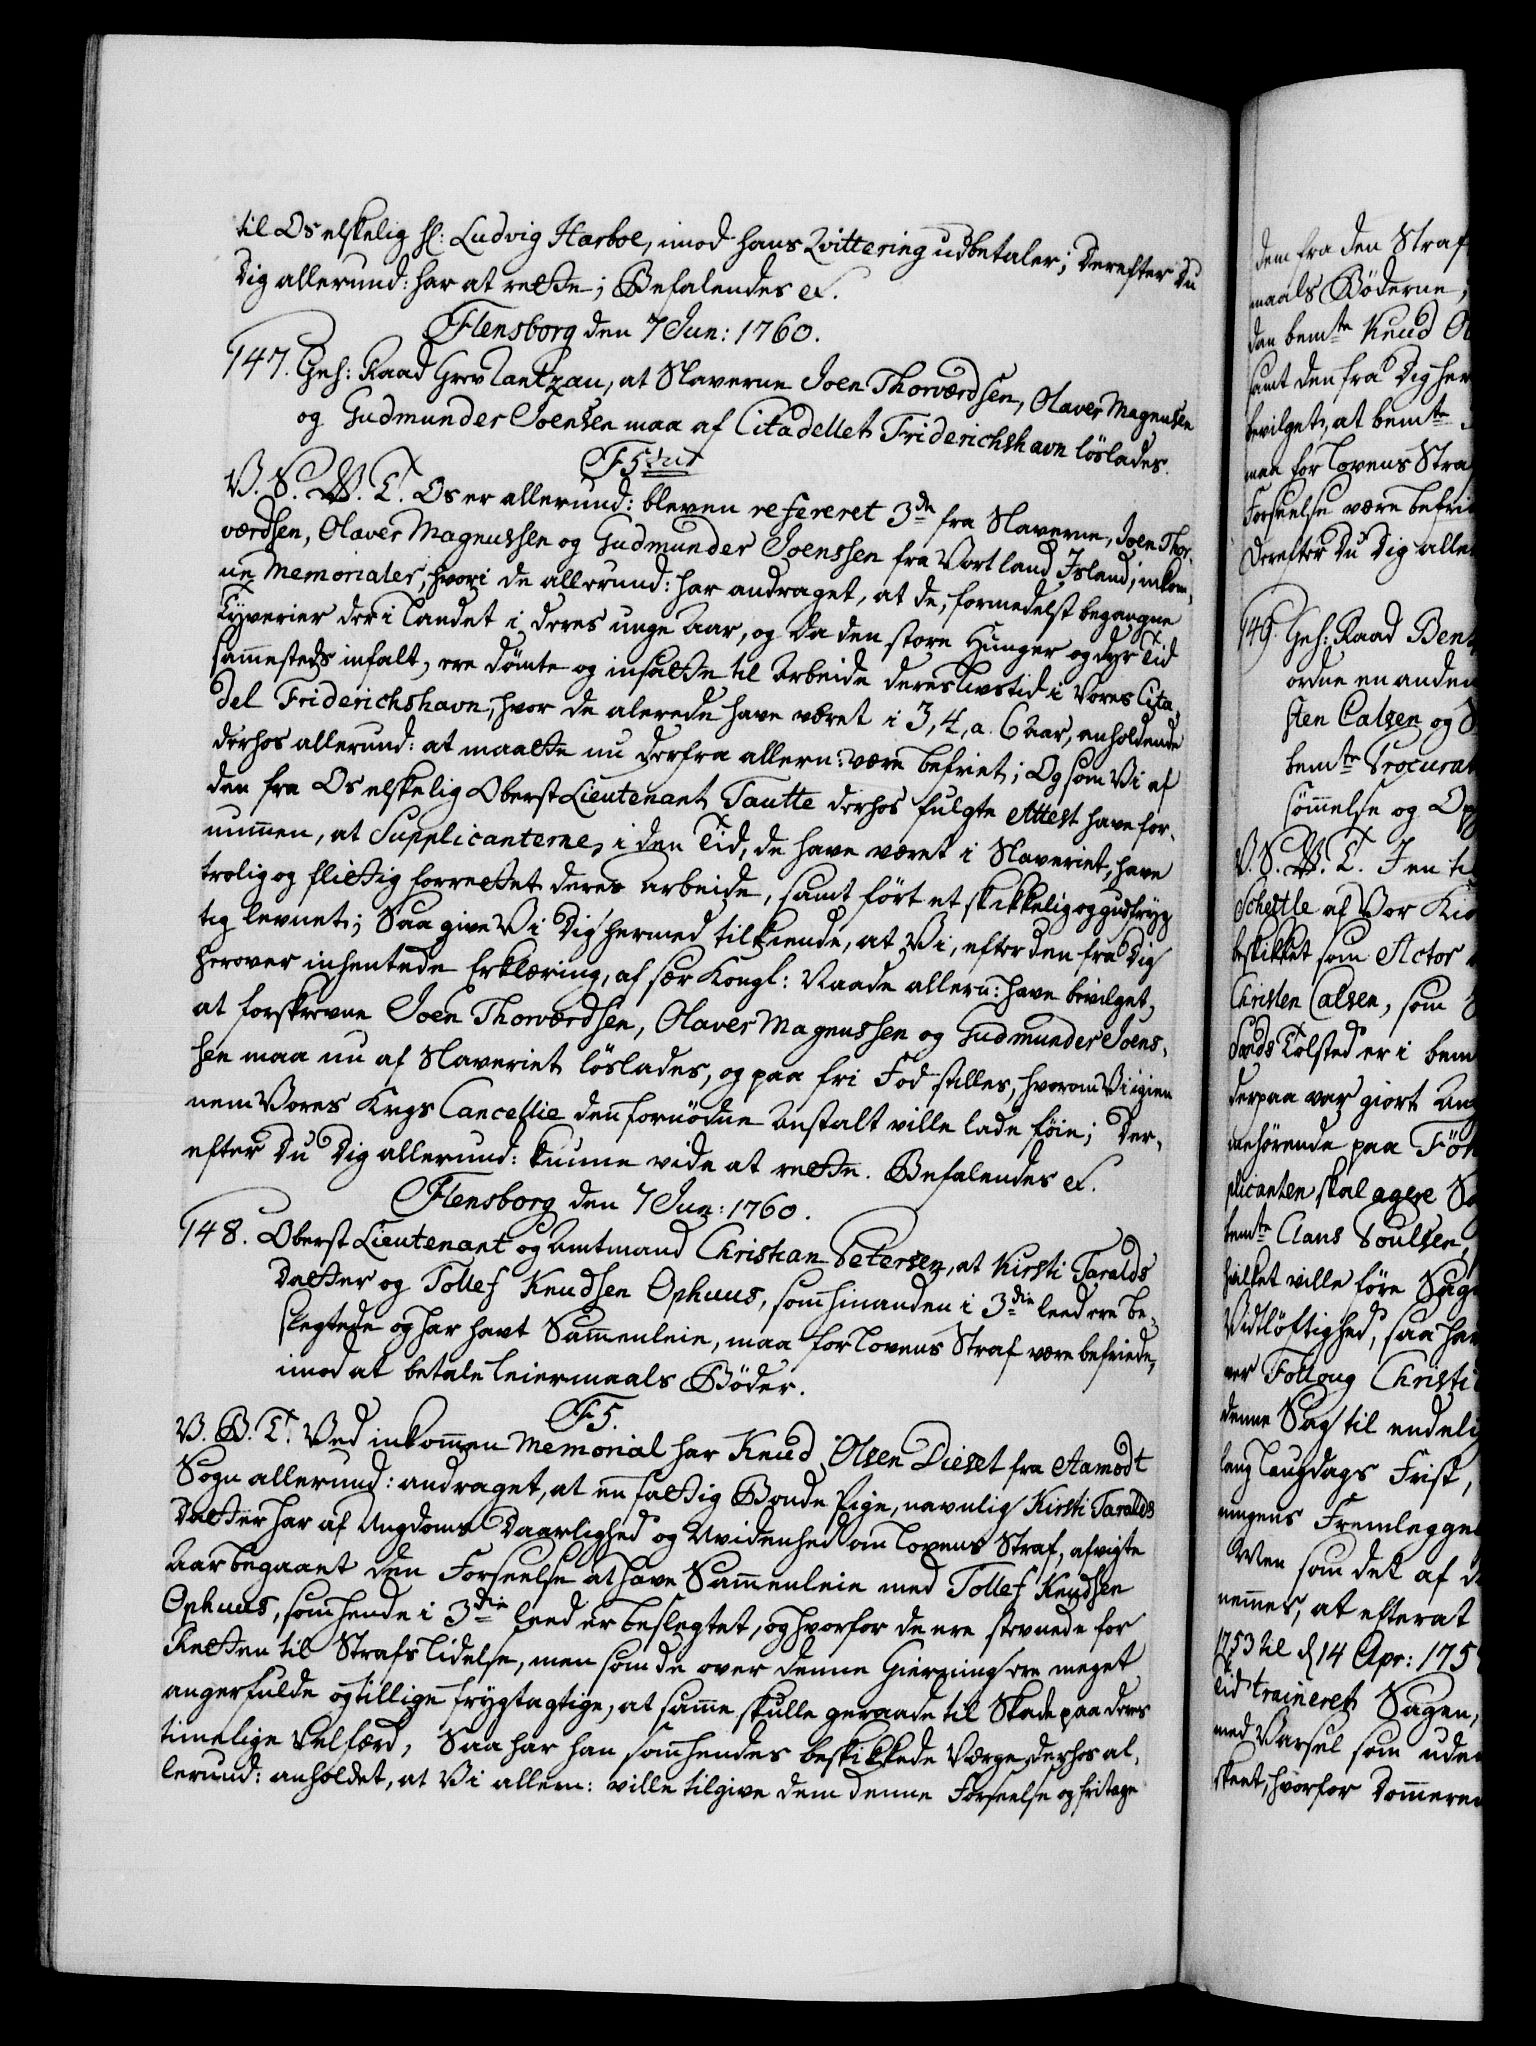 til Os elskelig H: Ludvig Harboe, imod hans Qvittering udbetaler; Derefter Du
Dig allerund: har at rette; Befalendes &.
Flensborg den 7 Jun: 1760.
147. Geh: Raad Grev Rantzau, at Slaverne Joen Thorværdsen, Olaver Magnusen
og Gudmunder Joensen maa af Citadellet Friderichshavn löslades.
F5
V. S. W. T. Os er allerund: bleven refereret 3de fra Slaverne, Joen Thor-
værdsen, Olaver Magnussen og Gudmunder Joenssen fra Vort land Island, inkom-
ne Memorialer, hvori de allerund: har andraget, at de, formedelst begangne
Tyverier der i Landet i deres unge Aar, og da den store Hunger og dyr Tid
sammesteds infalt, ere dömte og insatte til Arbeide deres livstid i Vores Cita-
del Friderichshavn, hvor de alerede have været i 3, 4, a. 6 Aar, anholdende
derhos allerund: at maatte nu derfra allern: være befriet; Og som Vi af
den fra Os elskelig Oberst Lieutenant Tautte derhos fulgte Attest have for-
nummen, at Supplicanterne, i den Tid, de have været i Slaveriet, have
trolig og flittig forrettet deres Arbeide, samt fört et skikkelig og gudfryg-
tig levnet; Saa give Vi Dig hermed tilkiende, at Vi, efter den fra Dig
herover inhentede Erklæring, af sær Kongl: Naade allern: have bevilget,
at forskrevne Joen Thorværdsen, Olaver Magnussen og Gudmunder Joens-
sen maa nu af Slaveriet löslades, og paa fri Fod stilles, hvorom Vi igien
nem Vores Krgs Cancellie den fornödne Anstalt ville lade föie; Der-
efter Du Dig allerund: kunne vide at rette. Befalendes &.
Flensborg den 7 Jun: 1760.
148. Oberst Lieutenant og Amtmand Christian Petersen, at Kirsti Taralds
Datter og Tollef Knudsen Ophuus, som hinanden i 3die leed ere be-
slegtede og har havt Sammenleie, maa for lovens Straf være befriede,
imod at betale leiermaals Böder.
F5.
V. G. T. Ved inkommen Memorial har Knud Olsen Dieset fra Aamodt
Sogn allerund: andraget, at en fattig Bonde Pige, navnlig Kirsti Taralds
Datter har af Ungdoms Daarlighed og Uvidenhed om lovens Straf, afvigte
Aar begaaet den Forseelse at have Sammenleie med Tollef Knudsen
Ophuus, som hende i 3die leed er beslegtet, og hvorfor de ere stevnede for
Retten til Strafs lidelse, men som de over denne Gierning ere meget
angerfulde og tillige frygtagtige, at samme skulle geraade til Skade paa deres
timelige Velfærd, Saa har han som hendes beskikkede Værge derhos al-
lerund: anholdet, at Vi allern: ville tilgive dem denne Forseelse og fritage
dem fra den Straf
maals Böderne,
dan bemte Knud Ol
samt den fra Dig her
bevilget, at bemte
maa for lovens Stra
Forseelse være befri
derefter Du Dig alle
149. Geh: Raad Bent
ordne en anden
sten Calsen og
bemte Procurat
sömmelse og Op
V. S. W. T. J en ti
Schestle af Vor Kiö
beskikket som Actor
Christen Calsen, som
Tolsted er i bem
derpaa var giort An
nehörende paa Föh
plicanten skal agere Sa
bemte Claus Poulsen,
hvilket ville före Sag
Vidtlöftighed, saa har
ver Folloug Christi
denne Sag til endelig
lang laugdags Frist,
ningens Fremlegge
Men som det af d
nemmes, at efterat
1753 til d 14 Apr: 175
Tid traineret Sagen,
med Varsel som ude
skeet, hvorfor Dommeren